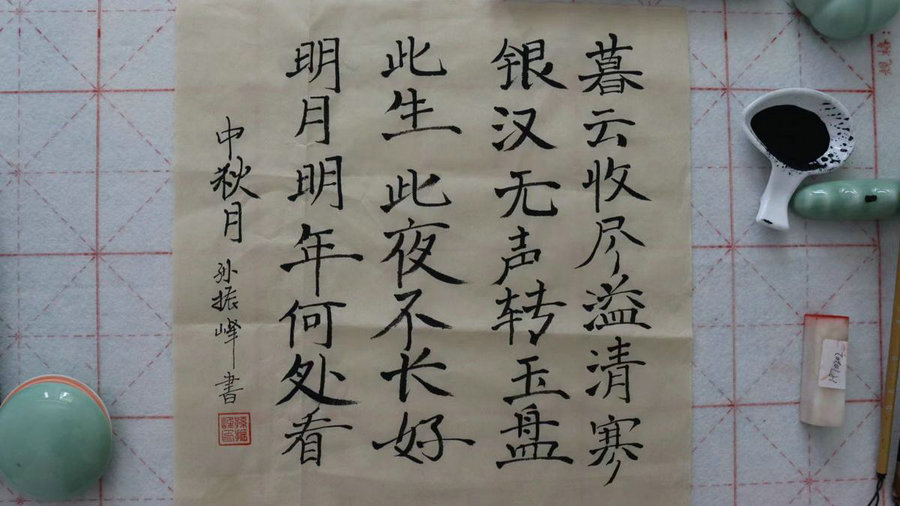 暮云收尽溢清寒
银汉无声转玉盘
此生此夜不长好
明月明年何处看
中秋月
孙振峰书